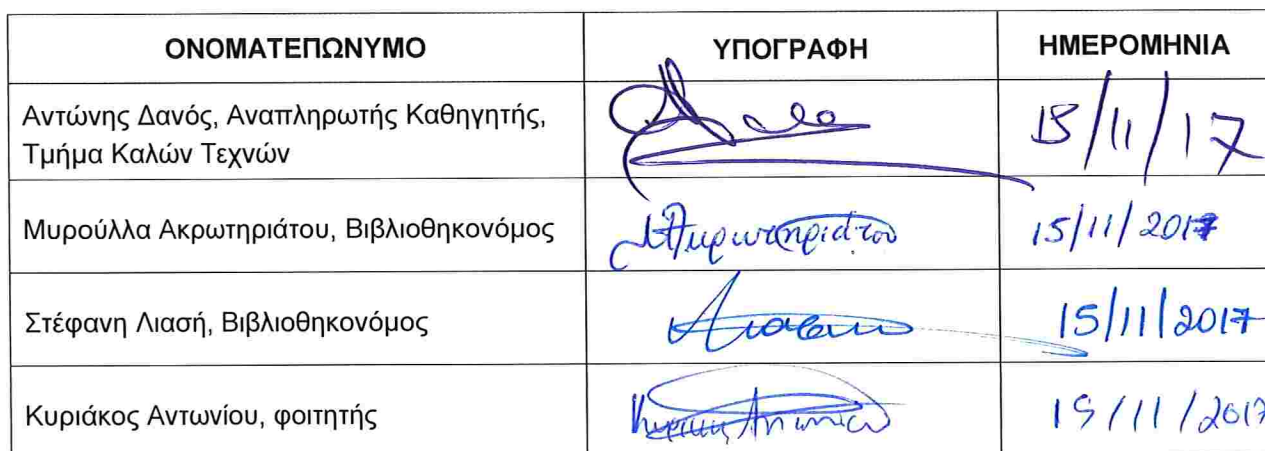 ΟΝΟΜΑΤΕΠΩΝΥΜΟ ΥΠΟΓΡΑΦΗ ΗΜΕΡΟΜΗΝΙΑ
Αντώνης Δανός, Αναπληρωτής Καθηγητής,
Τμήμα Καλών Τεχνών
15/11/17
Μυρούλλα Ακρωτηριάτου, Βιβλιοθηκονόμος 15/11/2017
Στέφανη Λιασή, Βιβλιοθηκονόμος 15/11/2017
Κυριάκος Αντωνίου, φοιτητής 15/11/2017